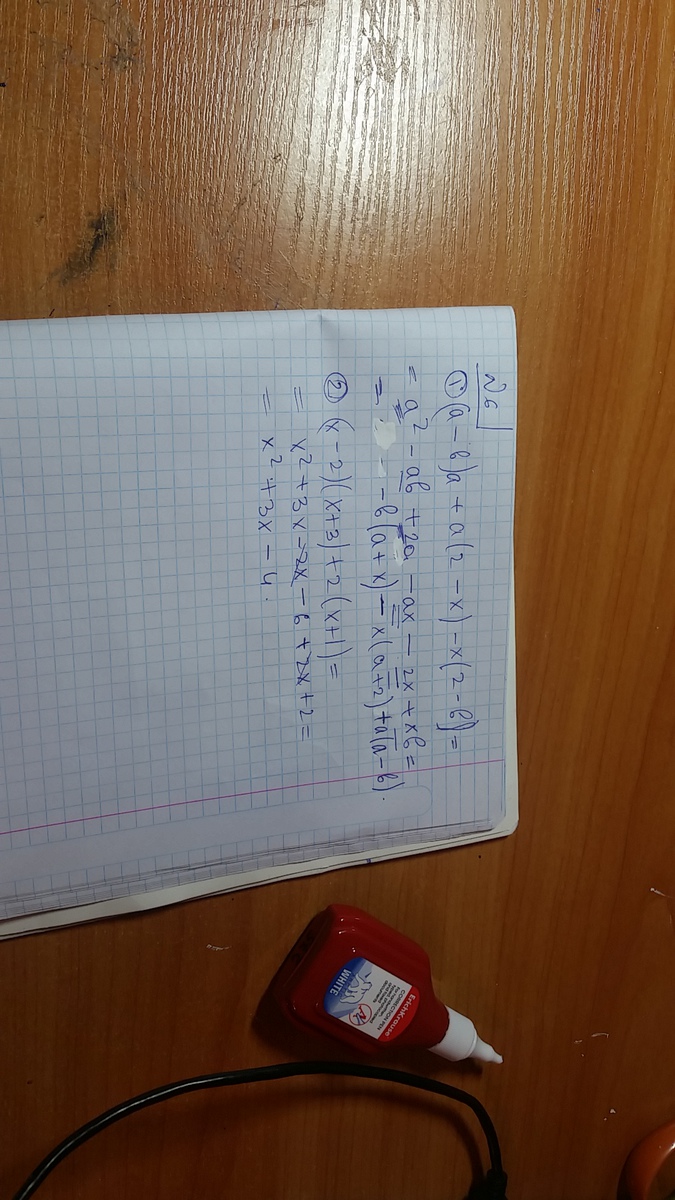 №6
① (a - b)a + a(2 - x) - x(2 - b) =
= a² - ab + 2a - ax - 2x + xb =
= - b(a + x) - x(a + 2) + a(a - b).
② (x - 2)(x + 3) + 2(x + 1) =
= x² + 3x - 2x - 6 + 2x + 2 =
= x² + 3x - 4.
ErichKrause
CORRECTION PEN
WHITE